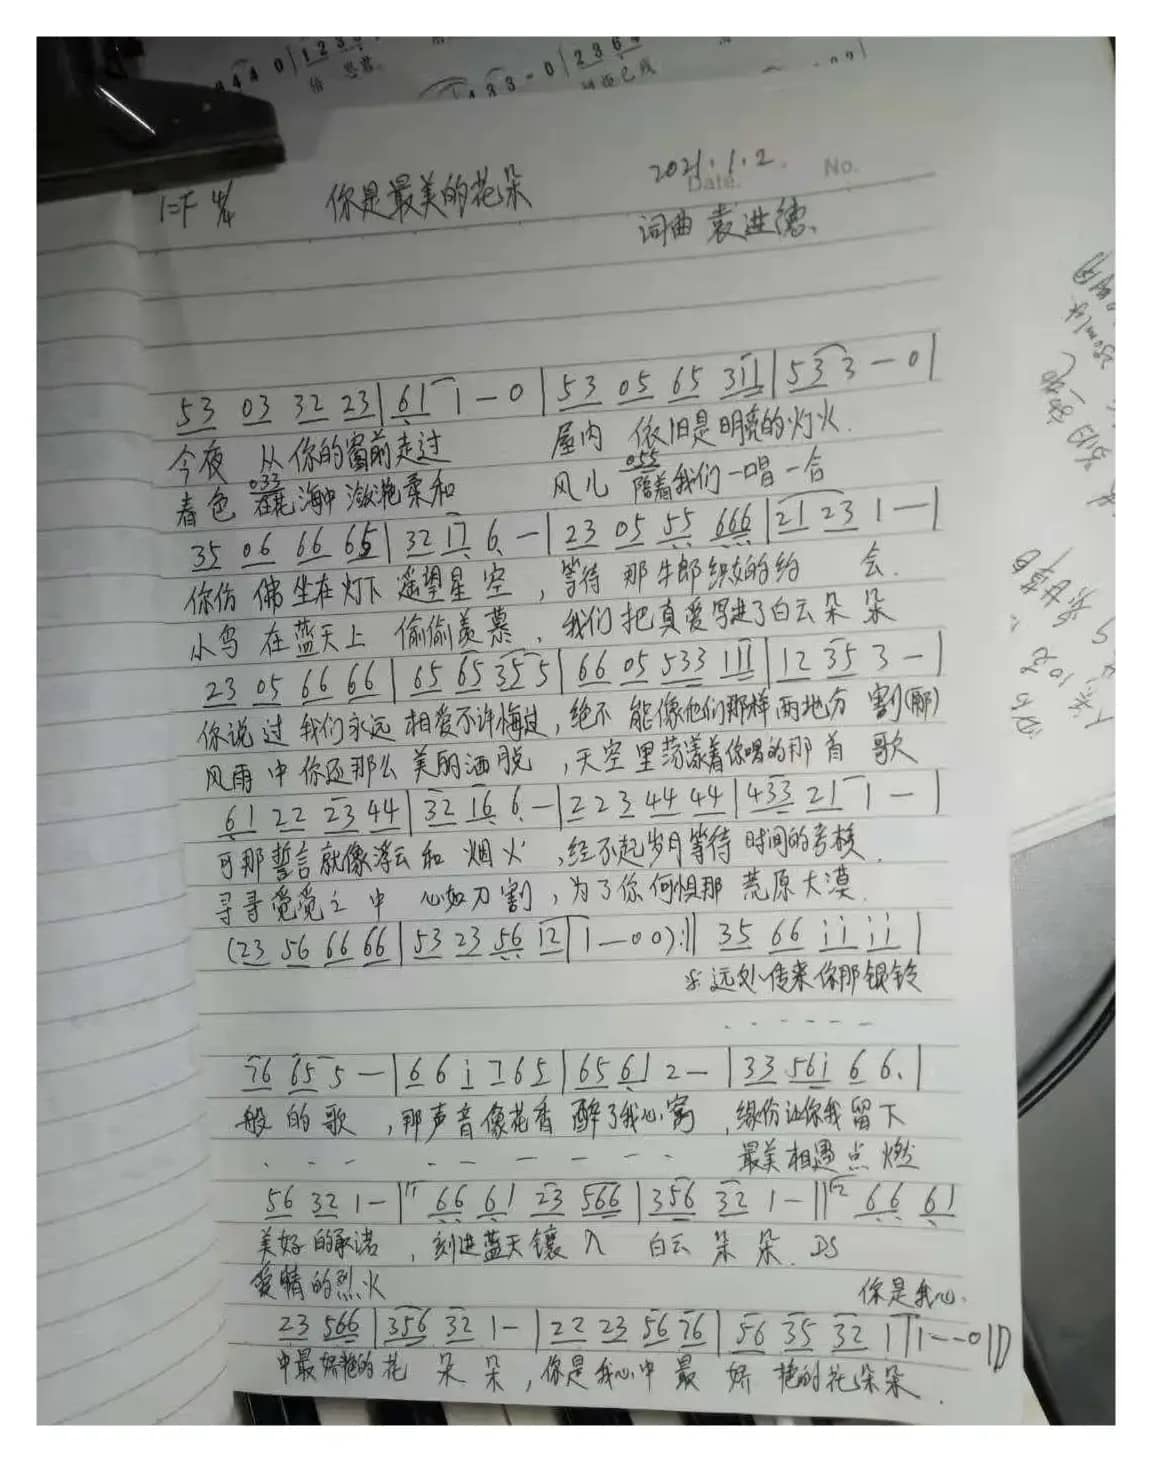 2021.1.2.
Date. No.
1=F 4/4 你是最美的花朵
词曲 袁进德、
53 03 32 23|61 1-0|53 05 65 311|533-0|
今夜 从你的窗前走过 屋内 依旧是明亮的灯火.
033 055
春色 在花海中潋滟柔和 风儿 陪着我们一唱一合
35 06 66 65|32 17 6-|23 05 55 666|21 23 1-|
你仿佛坐在灯下遥望星空,等待那牛郎织女的约 会.
小鸟在蓝天上偷偷羡慕,我们把真爱写进了白云朵朵
23 05 66 66|65 65 35 5|66 05 533 111|12 35 3-|
你说过我们永远相爱不许悔过,绝不能像他们那样两地分割(那)
风雨中你还那么美丽洒脱,天空里荡漾着你唱的那首歌
61 22 23 44|32 16 6-|2 2 3 44 44|433 21 1-|
可那誓言就像浮云和烟火,经不起岁月等待时间的考核.
寻寻觅觅之中心如刀割,为了你何惧那荒原大漠.
(23 56 66 66|53 23 56 12|1-00):‖ 35 66 ii ii|
远处传来你那银铃
- - - - - -
76 65 5-|66i765|65 61 2-|33 56i 6 6.|
般的歌,那声音像花香醉了我心窝,缘份让你我留下
最美相遇点燃
56 32 1-|66 61 23 566|356 32 1-‖66 61
美好的承诺,刻进蓝天镶入白云朵朵.DS
爱情的烈火 你是我心.
23 566|356 32 1-|22 23 56 76|56 35 32 1|1--0‖
中最娇艳的花朵朵,你是我心中最娇艳的花朵朵.